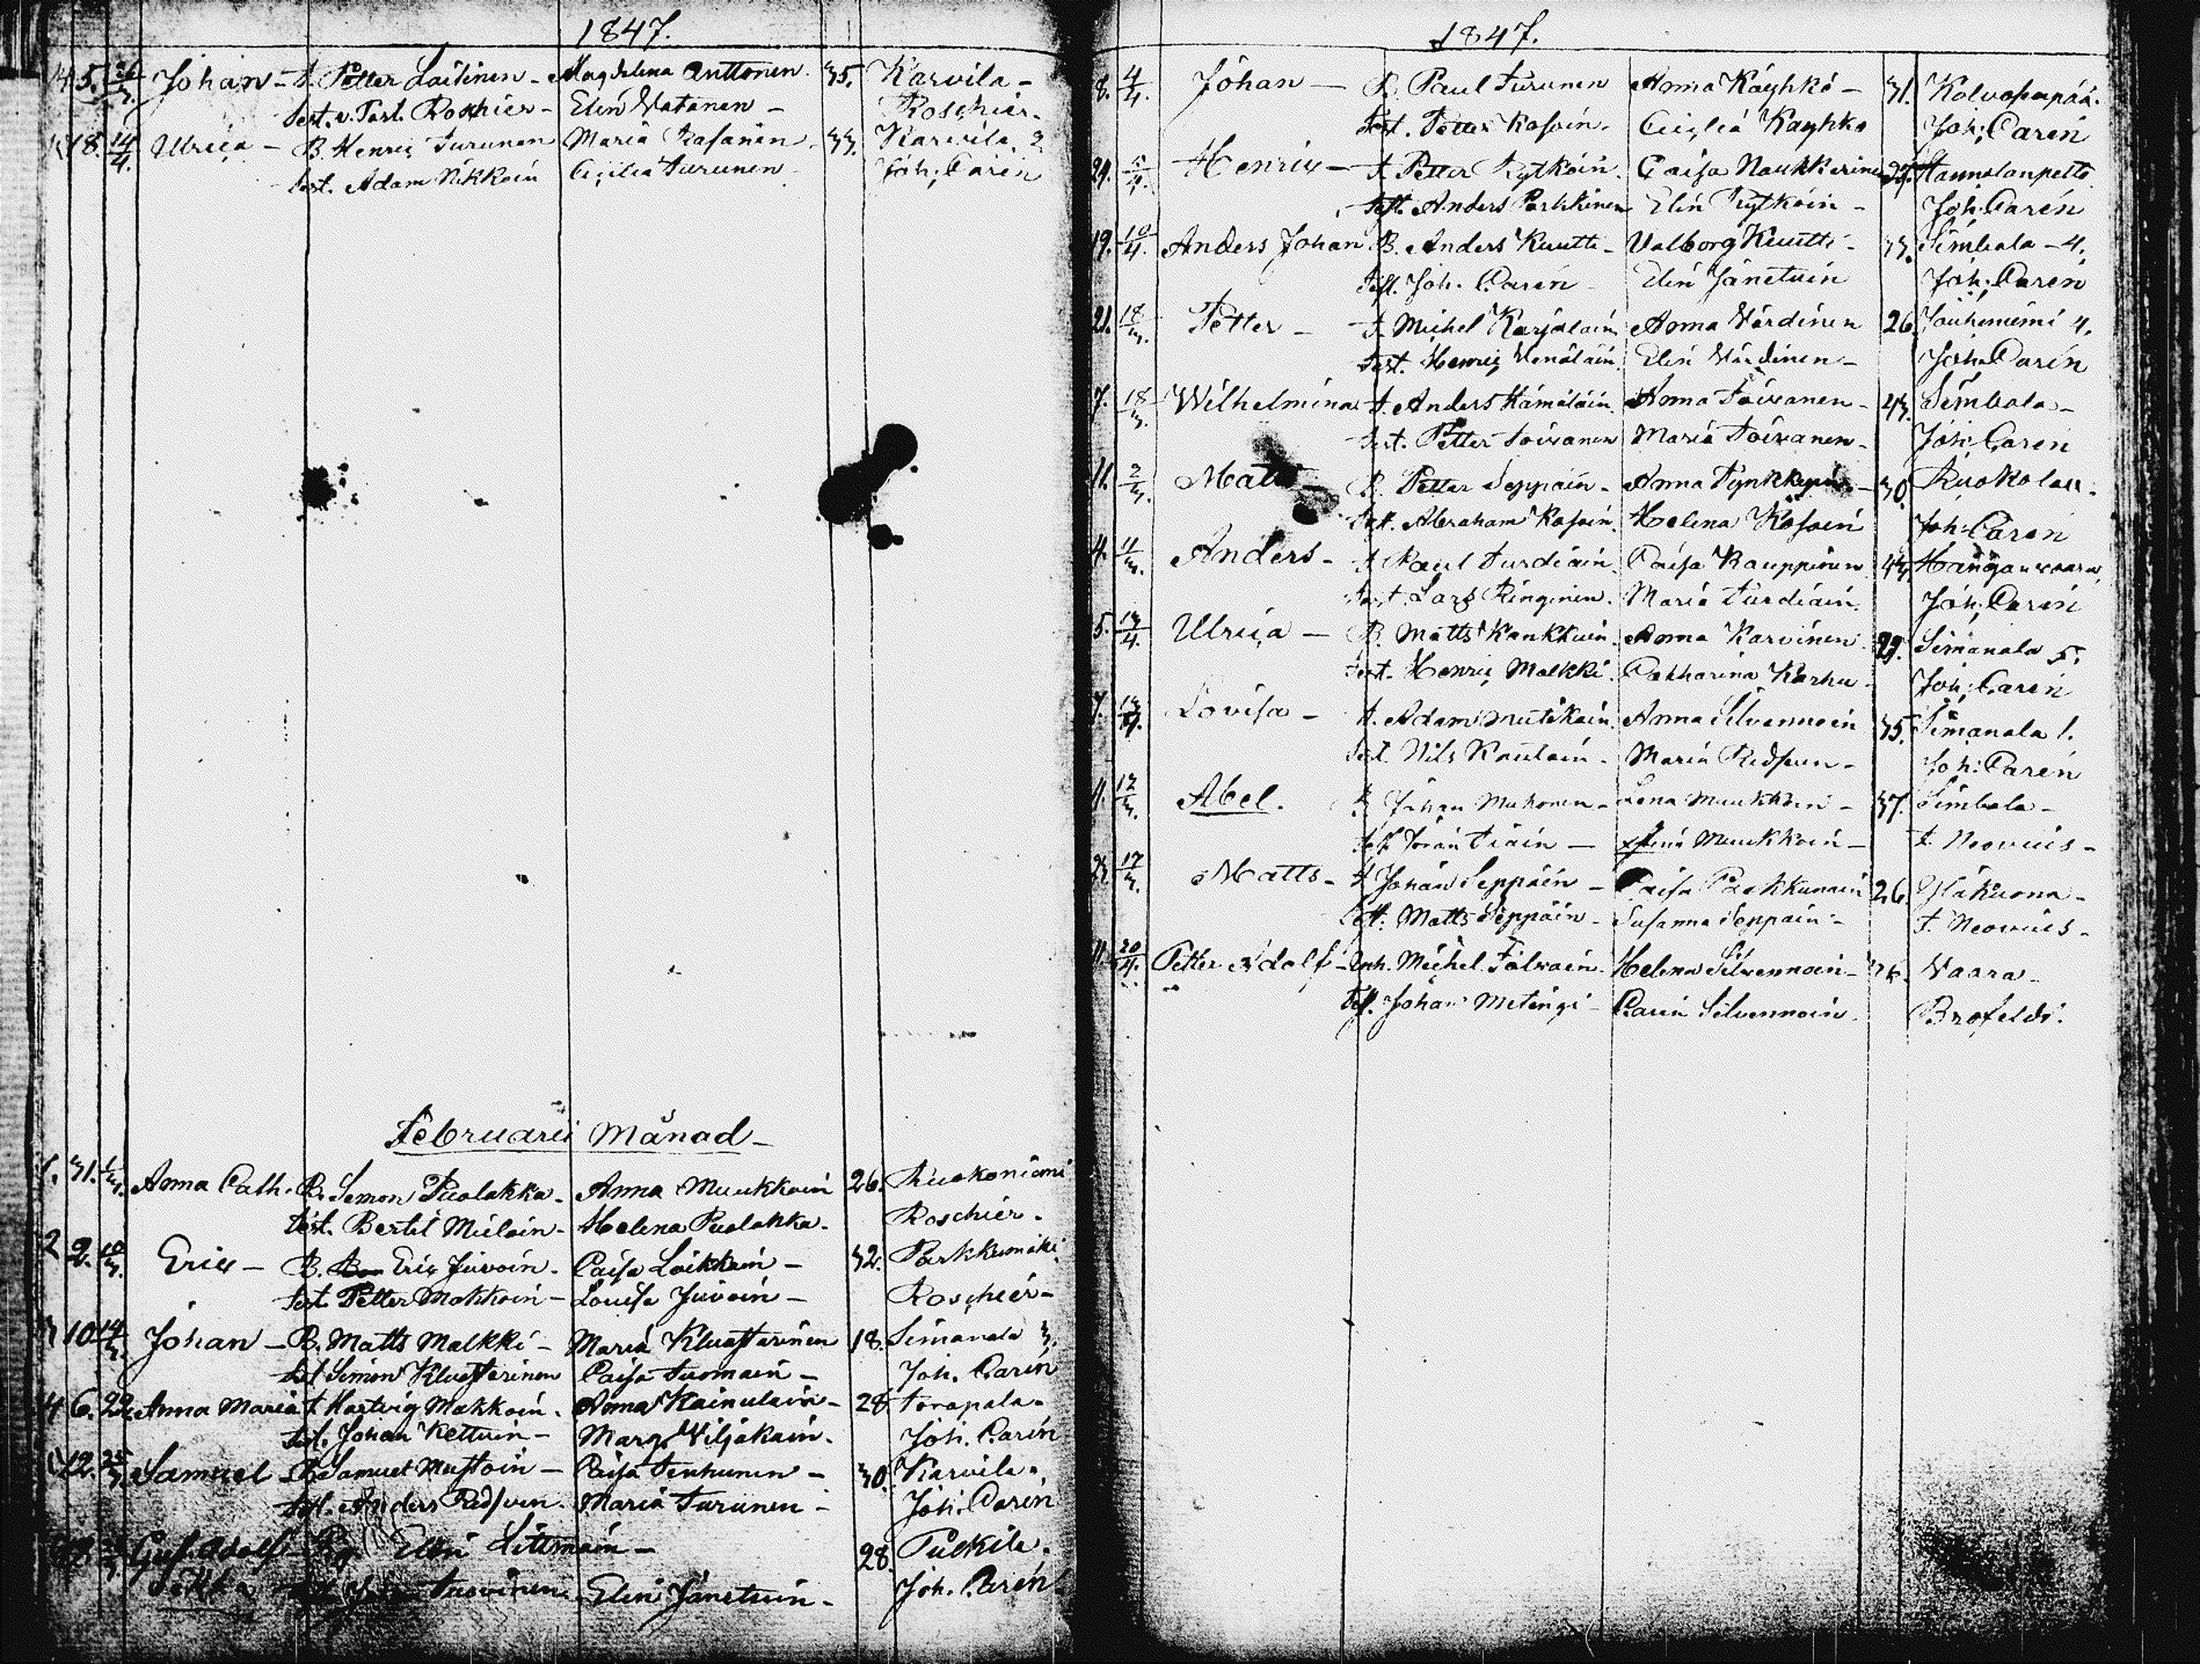 1847.
5. Johan - t. Petter Laitinen - Magdelena Anttonen 35. Karvila -
Test. v. Past. Roschier - Elin Vatanen - Roschier.
18. 14/4. Ulrica - B. Henric Turunen Maria Kasanen 33. Karvila. 2
Test. Adam Nikkoin Cecilia Turunen Joh. Carén
Februarii Månad -
1. 31. Anna Cath. B. Simon Puolakka - Anna Muukkoin 26. Ruokoniemi
Test. Bertil Mieloin - Helena Puolakka - Roschier -
2 2. 10/3. Eric - B. Eric Juvoin - Caisa Loikkain - 32. Parkkumäki
Test. Petter Makkoin - Lovisa Juvoin - Roschier -
3 10 14/3. Johan - B. Matts Malkki - Maria Kluastarinen 18. Simanala 3.
Test Simon Kluastarinen Caisa Tuomain - Joh. Carén
4 6. 22 Anna Maria t Hartvig Makkoin - Anna Kainulain - 28. Torapala -
Test. Johan Kettuin - Marg. Viljakain - Joh. Carén
12. 25/3. Samuel - B. Samuel Mustoin - Caisa Tenhunen - 30. Karvila -
Test. Anders Redsven - Maria Turunen - Joh. Carén
Gust. Adolf Pig. Elin Littmain - 28. Pulkila -
Tuovinen - Elin Jänetuin - Joh. Carén
1847.
8. 4/4. Johan - B. Paul Turunen Anna Käyhkö - 31. Kolvosenpää.
Test. Petter Kosoin - Cecilia Kayhko Joh. Carén
29. Henric - t. Petter Rytköin - Caisa Naukkarinen 32. Haunolanpelto
Test. Anders Parkkinen Elin Rytköin - Joh. Carén
19. 10/4. Anders Johan B. Anders Kuutti - Valborg Kuutti - 33. Simbala - 4.
Test. Joh. Carén - Elin Jänetuin Joh. Carén
21. 18/3. Petter - t. Michel Karjalain Anna Värdinen 26. Jouhenniemi 4.
Test. Henric Venäläin. Elin Värdinen - Joh. Carén
7. 18/3. Wilhelmina t. Anders Hämäläin. Anna Toivanen - 43. Simbala -
Test. Petter Toivanen Maria Toivanen - Joh. Carén
11. 2/3. Matts B. Petter Seppäin - Anna Tynkkynen - 30. Ruokolax.
Test. Abraham Kosoin. Helena Kosoin Joh. Carén
4. 11/3. Anders - t. Paul Turdiain. Caisa Kauppinen 43. Hanganvaara
Test. Lars Ringinen. Maria Turdiain. Joh. Carén
5. 13/4. Ulrica - B. Matts Kankkuin. Anna Karvinen 29. Simanala 5.
Test. Henric Malkki. Catharina Karhu - Joh. Carén
7. Lovisa - t. Adam Mutikain. Anna Silvennoin 35. Simanala 1.
Test. Nils Kaulain - Maria Redsven - Joh. Carén
11. 12/3. Abel. B. Johan Muhonen - Lena Muukkoin - 37. Simbala -
Test. Tiain - Muukkoin - t. Neovius -
23. 17/3. Matts - t Johan Seppäin - Caisa Paakkunain 26. Yläkuona -
Test. Matts Seppäin - Susanna Seppain - t. Neovius -
11. 20/4. Petter Adolf - Inh. Michel Tolvain. Helena Silvennoin - Vaara -
Test. Johan Metingi - Carin Silvennoin. Brofeldt.